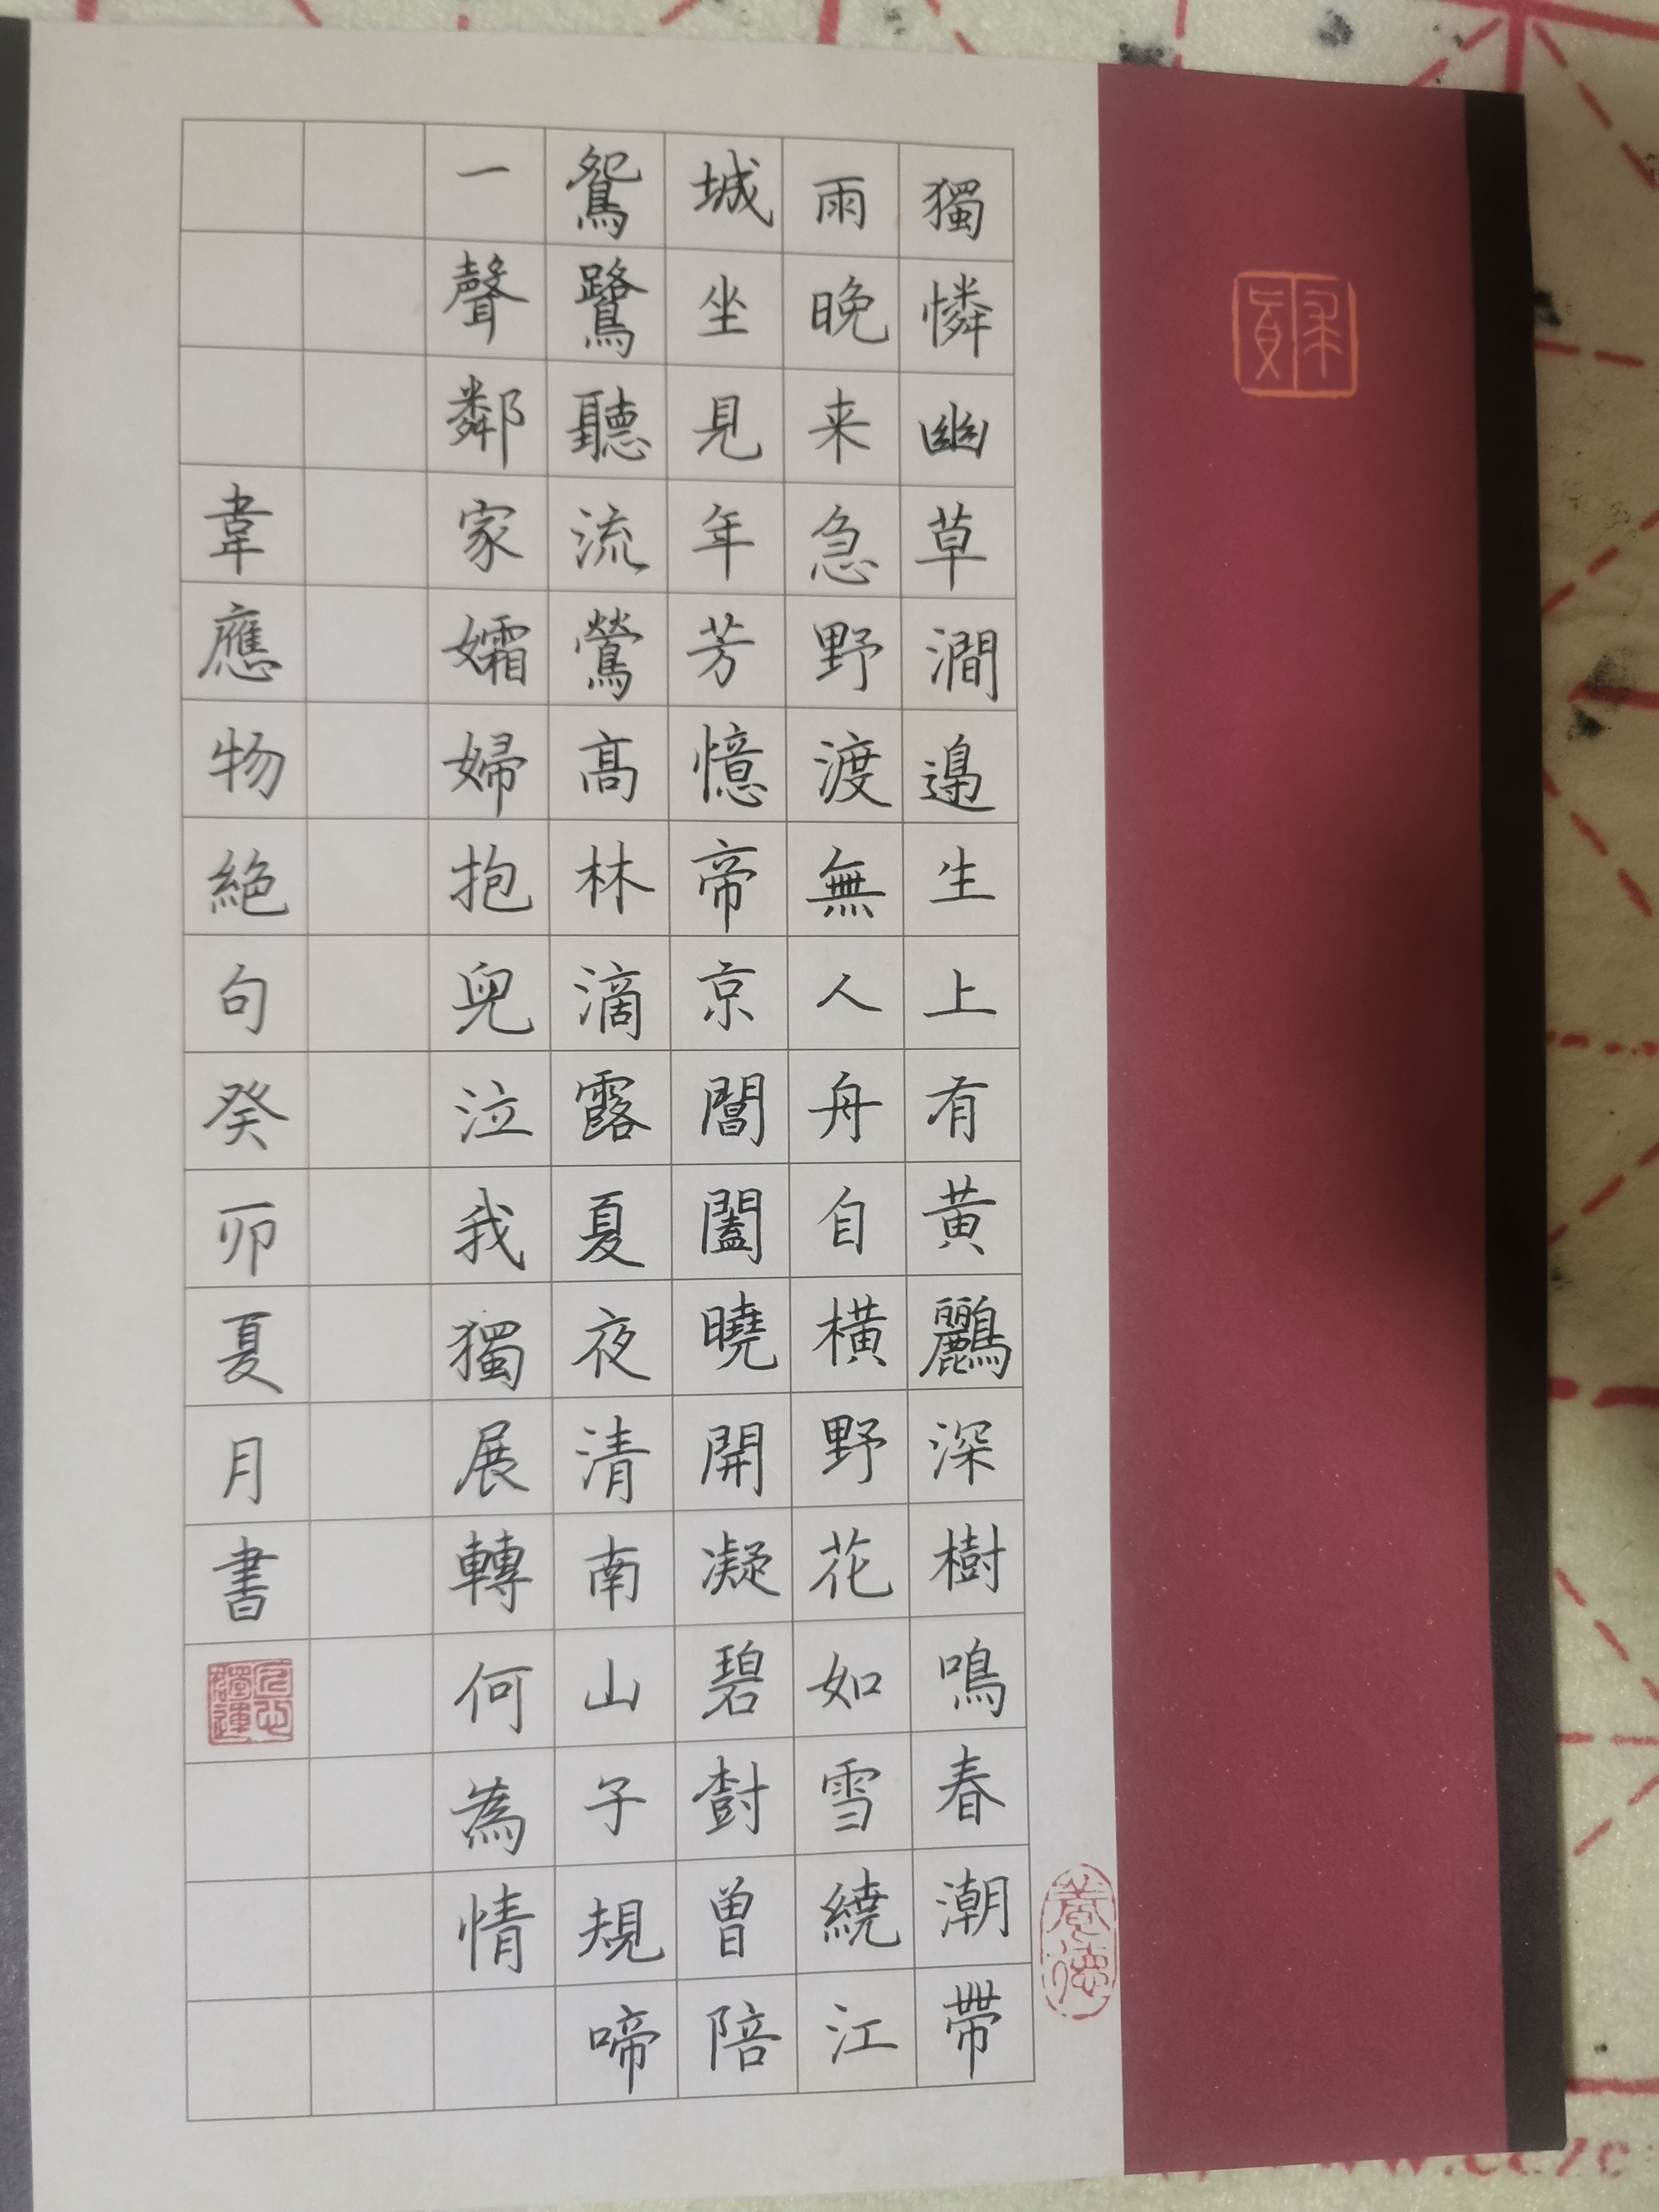 獨憐幽草澗邊生上有黃鸝深樹鳴春潮帶
雨晚来急野渡無人舟自橫野花如雪繞江
城坐見年芳憶帝京閶闔曉開凝碧樹曾陪
鴛鷺聽流鶯高林滴露夏夜清南山子規啼
一聲鄰家孀婦抱兒泣我獨展轉何為情
韋應物絕句癸卯夏月書
養德